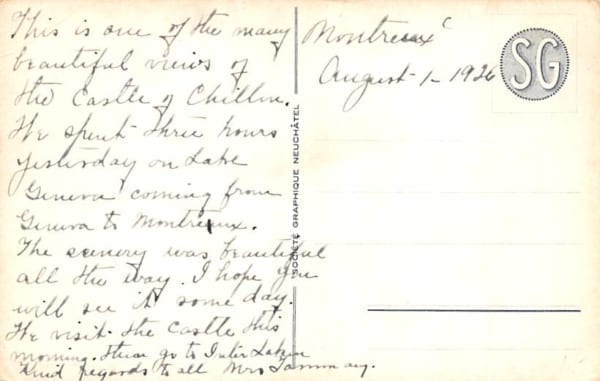 This is one of the many
beautiful views of
the Castle of Chillon.
We spent three hours
yesterday on Lake
Geneva coming from
Geneva to Montreux.
The scenery was beautiful
all the way. I hope you
will see it some day.
We visit the Castle this
morning. then go to Interlaken
Kind regards to all Mrs
Montreux
August 1 - 1926
SG
SOCIÉTÉ GRAPHIQUE NEUCHÂTEL